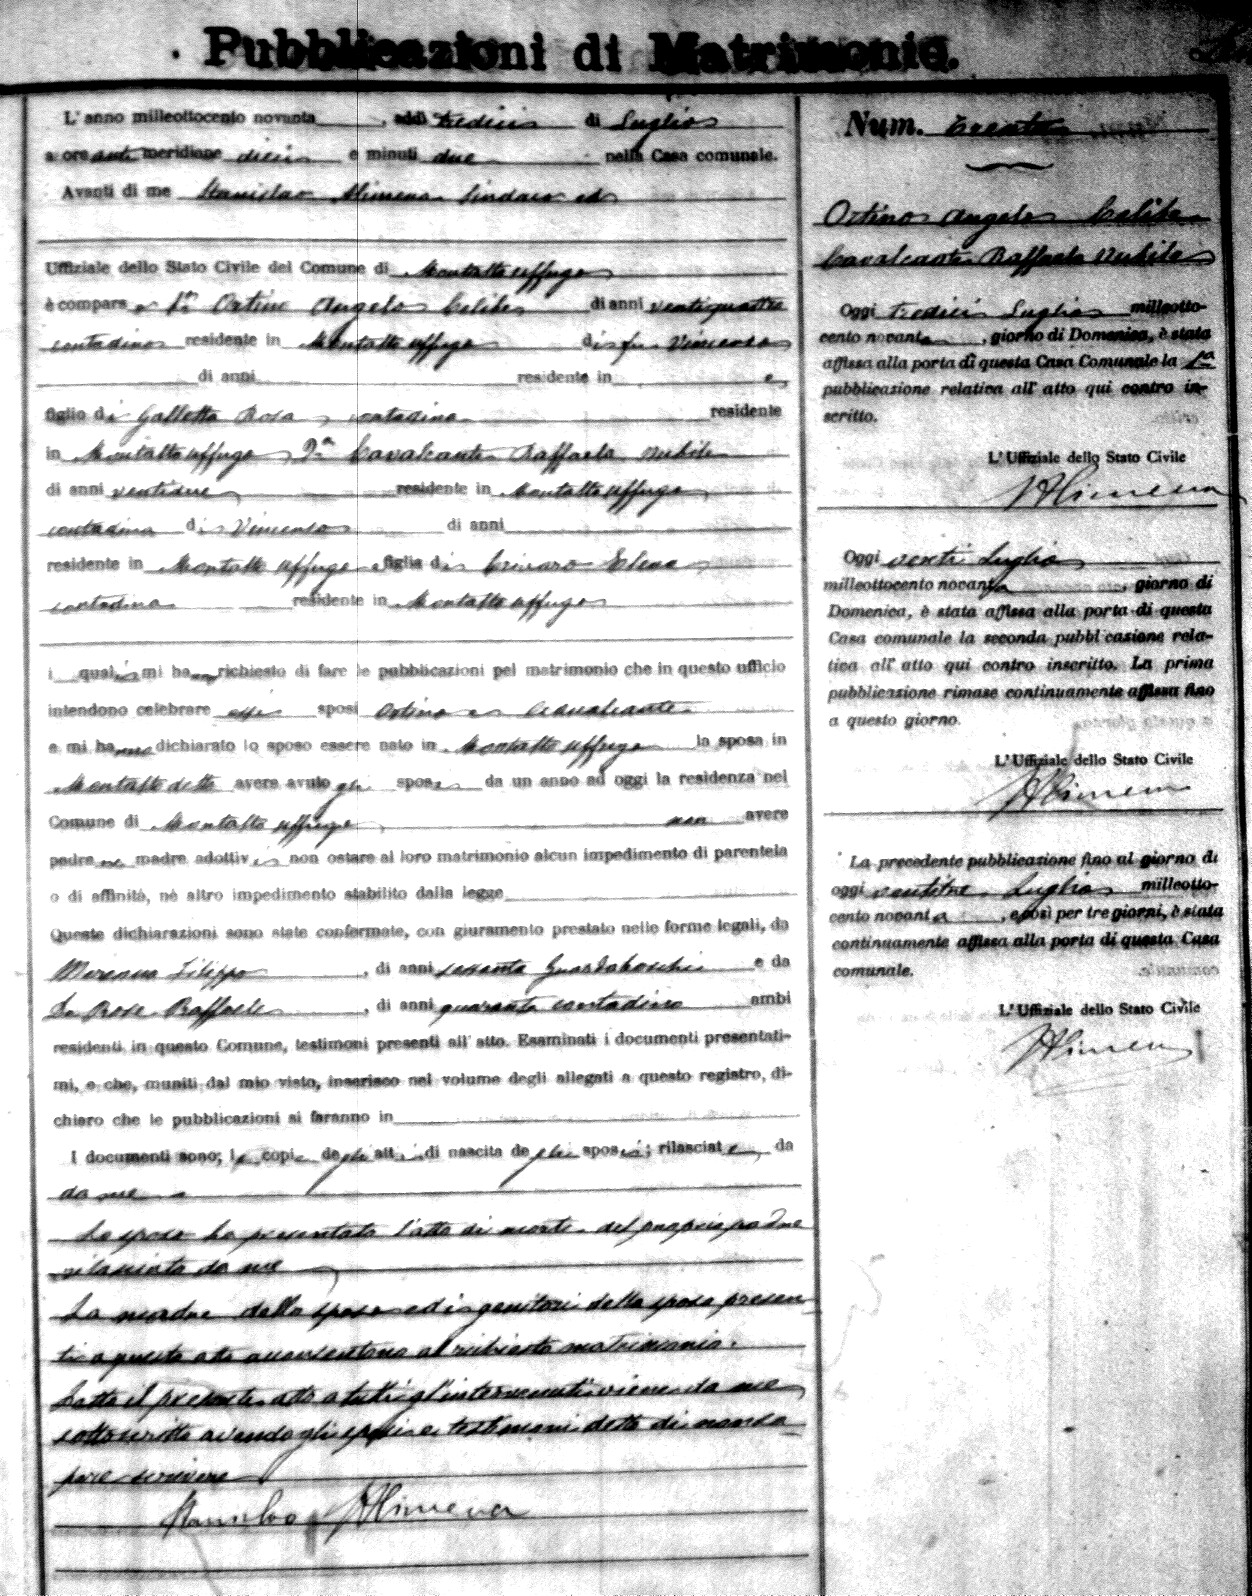 Pubblicazioni di Matrimonio.
L'anno milleottocento novanta, addì tredici di Luglio
a ore anti meridiane dieci e minuti due nella Casa comunale.
Avanti di me Stanislao Alimena Sindaco ed
Uffiziale dello Stato Civile del Comune di Montalto Uffugo
è compars o 1° Ortino Angelo Celibe di anni ventiquattro
contadino residente in Montalto Uffugo di fu Vincenzo
di anni residente in e
figlio di Galletta Rosa, contadina residente
in Montalto Uffugo, 2a Cavalcante Raffaela nubile
di anni ventidue residente in Montalto Uffugo
contadina di Vincenzo di anni
residente in Montalto Uffugo figlia di Crivaro Elena
contadina residente in Montalto Uffugo
i quali mi hanno richiesto di fare le pubblicazioni pel matrimonio che in questo ufficio
intendono celebrare essi sposi Ortino e Cavalcante
e mi hanno dichiarato lo sposo essere nato in Montalto Uffugo la sposa in
Montalto detto avere avuto gli sposi da un anno ad oggi la residenza nel
Comune di Montalto Uffugo, non avere
padre ne madre adottivi non ostare al loro matrimonio alcun impedimento di parentela
o di affinità, nè altro impedimento stabilito dalla legge
Queste dichiarazioni sono state confermate, con giuramento prestato nelle forme legali, da
Filippo, di anni sessanta Guardaboschi e da
De Rose Raffaele, di anni quaranta contadino ambi
residenti in questo Comune, testimoni presenti all'atto. Esaminati i documenti presentati-
mi, e che, muniti dal mio visto, inserisco nel volume degli allegati a questo registro, di-
chiaro che le pubblicazioni si faranno in
I documenti sono; le copie degli atti di nascita degli sposi; rilasciate, da
da me
Lo sposo ha presentato l'atto di morte del proprio padre
rilasciato da me
La madre dello sposo ed i genitori della sposa presen
ti a questo atto acconsentono al richiesto matrimonio.
Letto il presente atto a tutti gl'intervenuti viene da me
sottoscritto avendo gli sposi e testimoni detto di non sa
pere scrivere
Stanislao Alimena
Num. trenta
Ortino Angelo Celibe
Cavalcante Raffaela Nubile
Oggi tredici Luglio milleotto-
cento novanta, giorno di Domenica, è stata
affissa alla porta di questa Casa Comunale la 1a
pubblicazione relativa all'atto qui contro in-
scritto.
L'Uffiziale dello Stato Civile
SAlimena
Oggi venti Luglio
milleottocento novanta, giorno di
Domenica, è stata affissa alla porta di questa
Casa comunale la seconda pubblicazione rela-
tiva all'atto qui contro inscritto. La prima
pubblicazione rimase continuamente affissa fino
a questo giorno.
L'Uffiziale dello Stato Civile
SAlimena
La precedente pubblicazione fino al giorno di
oggi ventitre Luglio milleotto-
cento novanta, e così per tre giorni, è stata
continuamente affissa alla porta di questa Casa
comunale.
L'Uffiziale dello Stato Civile
SAlimena